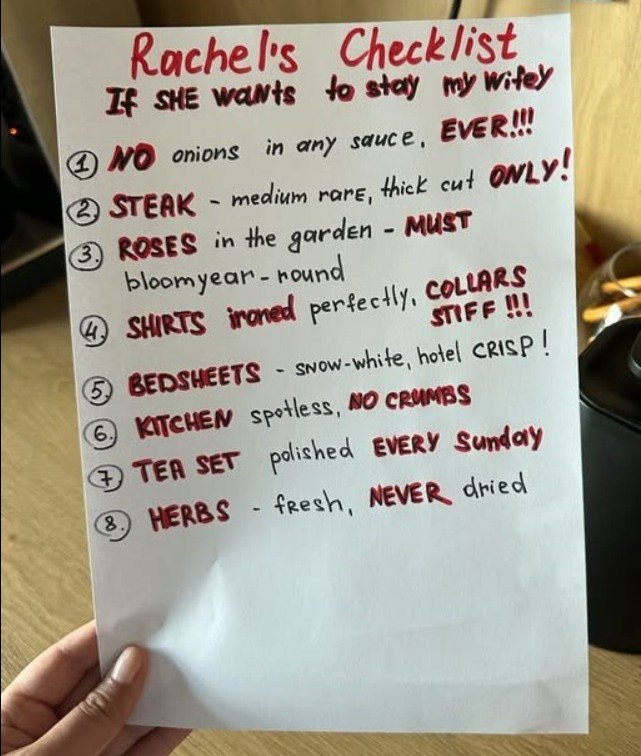 Rachel's Checklist
If SHE WANts to stay my wifey
1 NO onions in any sauce, EVER!!!
2. STEAK - medium rare, thick cut ONLY!
3. ROSES in the garden - MUST
bloomyear-round
4. SHIRTS ironed perfectly, COLLARS
STIFF !!!
5. BEDSHEETS - snow-white, hotel CRISP!
6. KITCHEN spotless, NO CRUMBS
7 TEA SET polished EVERY Sunday
8. HERBS - fresh, NEVER dried